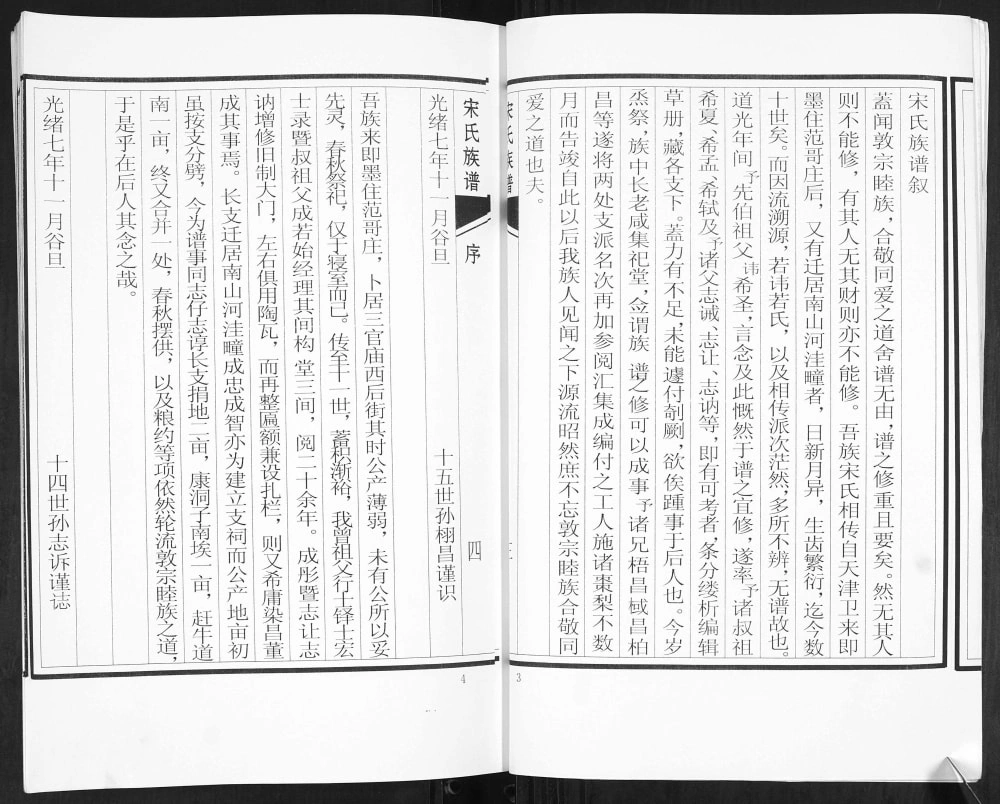 宋氏族谱叙
蓋闻敦宗睦族，合敬同爱之道舍谱无由，谱之修重且要矣。然无其人
则不能修，有其人无其财则亦不能修。吾族宋氏相传自天津卫来即
墨住范哥庄后，又有迁居南山河洼疃者，日新月异，生齿繁衍，迄今数
十世矣。而因流溯源，若讳若氏，以及相传派次茫然，多所不辨，无谱故也。
道光年间予先伯祖父讳希圣，言念及此慨然于谱之宜修，遂率予诸叔祖
希夏、希孟、希轼及予诸父志诚、志让、志讷等，即有可考者，条分缕析编辑
草册，藏各支下。蓋力有不足，未能遽付剞劂，欲俟踵事于后人也。今岁
烝祭，族中长老咸集祀堂，佥谓族 谱之修可以成事予诸兄梧昌棫昌柏
昌等遂将两处支派名次再加参阅汇集成编付之工人施诸棗梨不数
月而告竣自此以后我族人见闻之下源流昭然庶不忘敦宗睦族合敬同
爱之道也夫。
宋氏族谱
三
3
宋氏族谱
序
四
光绪七年十一月谷旦
十五世孙栩昌谨识
吾族来即墨住范哥庄，卜居三官庙西后街其时公产薄弱，未有公所以妥
先灵，春秋祭祀，仅于寝室而已。传至十一世，蓄积渐裕，我曾祖父行士铎士宏
士录暨叔祖父成若始经理其间构 堂三间，阅二十余年。成彤暨志让志
讷增修旧制大门，左右俱用陶瓦，而再整匾额兼设扎栏，则又希庸染昌董
成其事焉。长支迁居南山河洼疃成忠成智亦为建立支祠而公产地亩初
虽按支分劈，今为谱事同志仔志谆长支捐地二亩，康洞子南埃一亩，赶牛道
南一亩，终又合并一处，春秋摆供，以及粮约等项依然轮流敦宗睦族之道，
于是乎在后人其念之哉。
光绪七年十一月谷旦
十四世孙志诉谨誌
4